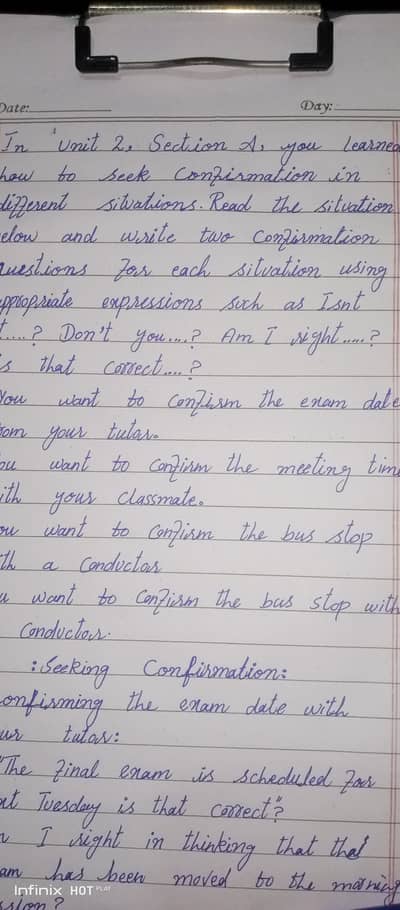 Date:
Day:
In Unit 2, Section A, you learned
how to seek Confirmation in
different situations. Read the situation
elow and write two Confirmation
questions for each situation using
appropriate expressions such as Isnt
t....? Don't you....? Am I right.....?
is that correct....?
You want to Confirm the exam date
rom your tutor.
ou want to Confirm the meeting time
ith your classmate.
ou want to Confirm the bus stop
th a Conductor
u want to Confirm the bus stop with
Conductor.
:Seeking Confirmation:
onfirming the exam date with
ur tutor:
"The final exam is scheduled for
xt Tuesday is that correct"?
I right in thinking that that
am has been moved to the morning
ssion?
Infinix HOT PLAY